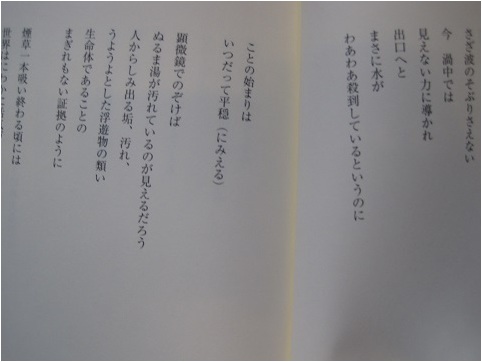 さざ波のそぶりさえない
今　渦中では
見えない力に導かれ
出口へと
まさに水が
わあわあ殺到しているというのに
ことの始まりは
いつだって平穏（にみえる）
顕微鏡でのぞけば
ぬるま湯が汚れているのが見えるだろう
人からしみ出る垢、汚れ、
うようよとした浮遊物の類い
生命体であることの
まぎれもない証拠のように
煙草一本吸い終わる頃には
世界は